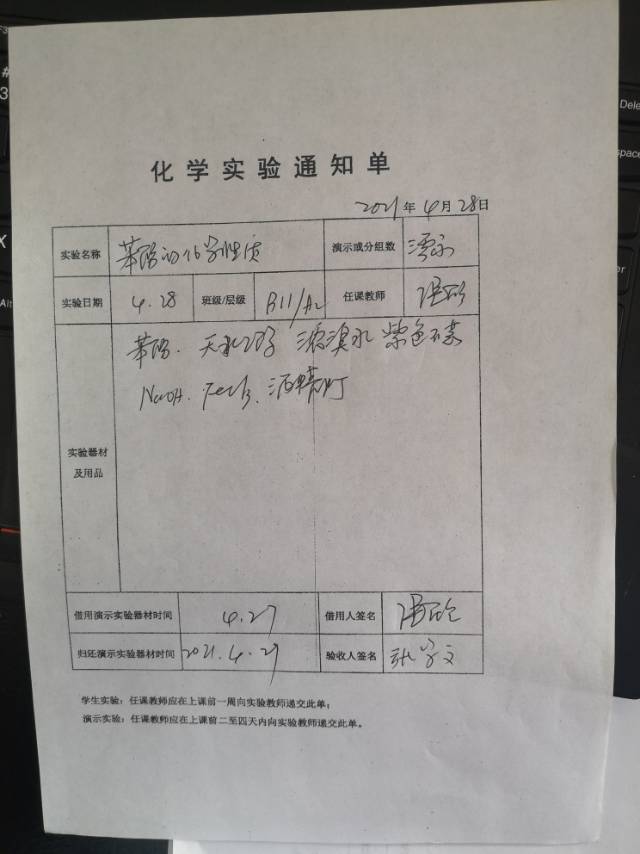 化学实验通知单
2021年4月28日
实验名称 苯酚的化学性质 演示或分组数 演示
实验日期 4.28 班级/层级 B11/A2 任课教师
实验器材及用品 苯酚. 无水乙醇 浓溴水 紫色石蕊
NaOH. FeCl3. 酒精灯
借用演示实验器材时间 4.27 借用人签名
归还演示实验器材时间 2021.4.29 验收人签名 张学文
学生实验：任课教师应在上课前一周向实验教师递交此单；
演示实验：任课教师应在上课前二至四天内向实验教师递交此单。